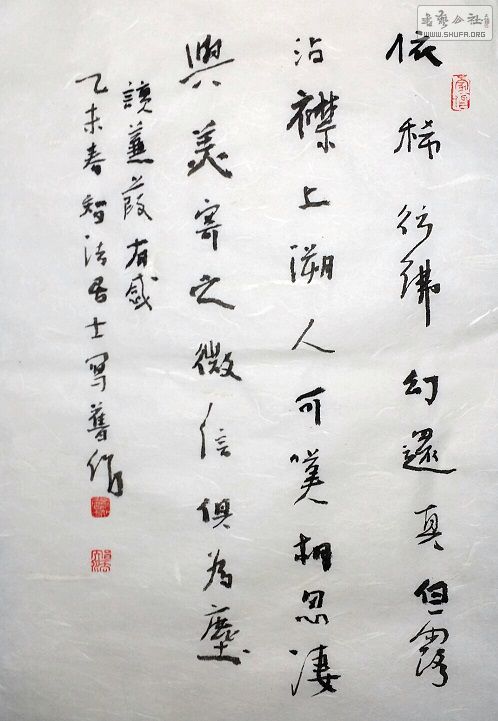 書藝公社
WWW.SHUFA.ORG
依稀彷彿幻還真但露
沾襟上溯人可嘆相思淒
與美寄之微信俱為塵
讀蒹葭有感
乙未春智法居士寫舊作